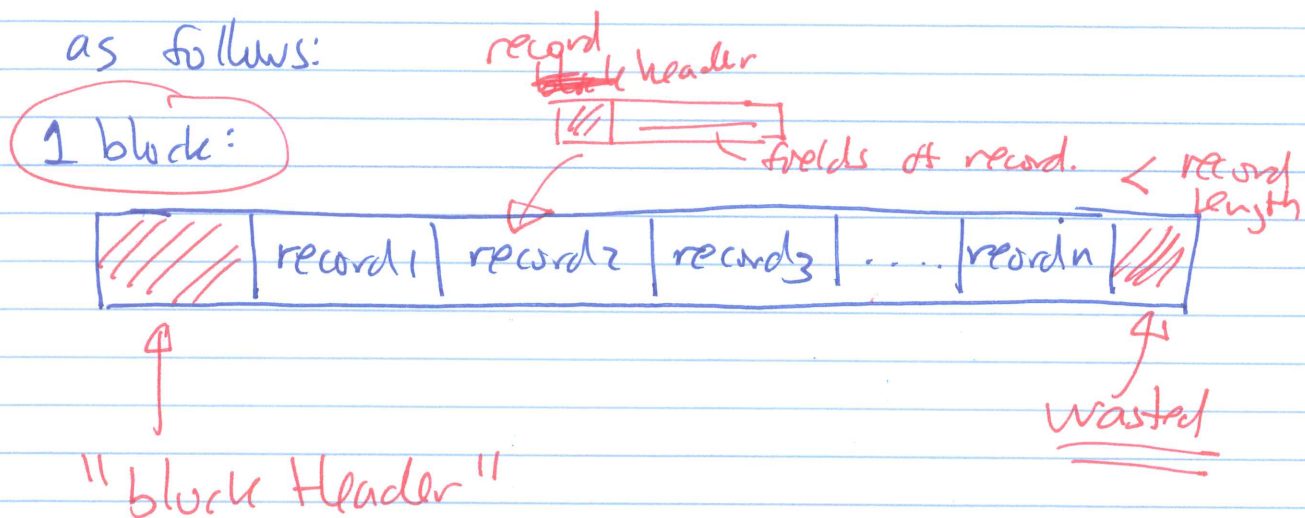 as follows:
record
header
1 block:
fields of record.
< record
length
record1 record2 record3 ..... reordn
wasted
"block Header"